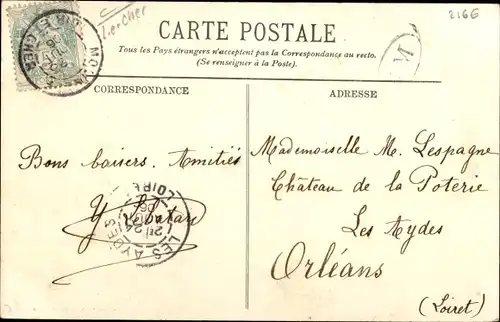 LerCher
2166
CARTE POSTALE
Tous les Pays étrangers n'acceptent pas la Correspondance au recto.
(Se renseigner à la Poste).
CORRESPONDANCE
ADRESSE
Bons baisers. Amitiés
Mademoiselle M. Lespagne
Château de la Poterie
Les Aydes
Orléans
(Loiret)
LES AYDES
LOIRET